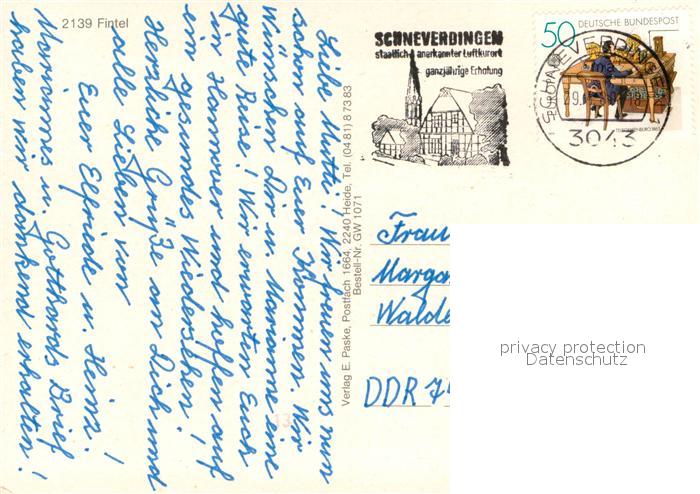 2139 Fintel
Liebe Mutti! Wir freuen uns nun
schon auf Euer Kommen. Wir
wünschen Dir u. Marianne eine
gute Reise! Wir erwarten Euch
in Hannover und hoffen auf
ein gesundes Wiedersehen!
Herzliche Grüße an Dich und
alle Lieben von
Euer Elfriede u. Heinz!
Mariannes u. Gotthards Brief
haben wir dankend erhalten!
Verlag E. Paske, Postfach 1664, 2240 Heide, Tel. (04 81) 8 73 83
Bestell-Nr. GW 1071
SCHNEVERDINGEN
staatlich anerkannter Luftkurort
ganzjährige Erholung
50 DEUTSCHE BUNDESPOST
SCHNEVERDINGEN
3043
Frau
Marga
Walde
DDR 74
privacy protection
Datenschutz